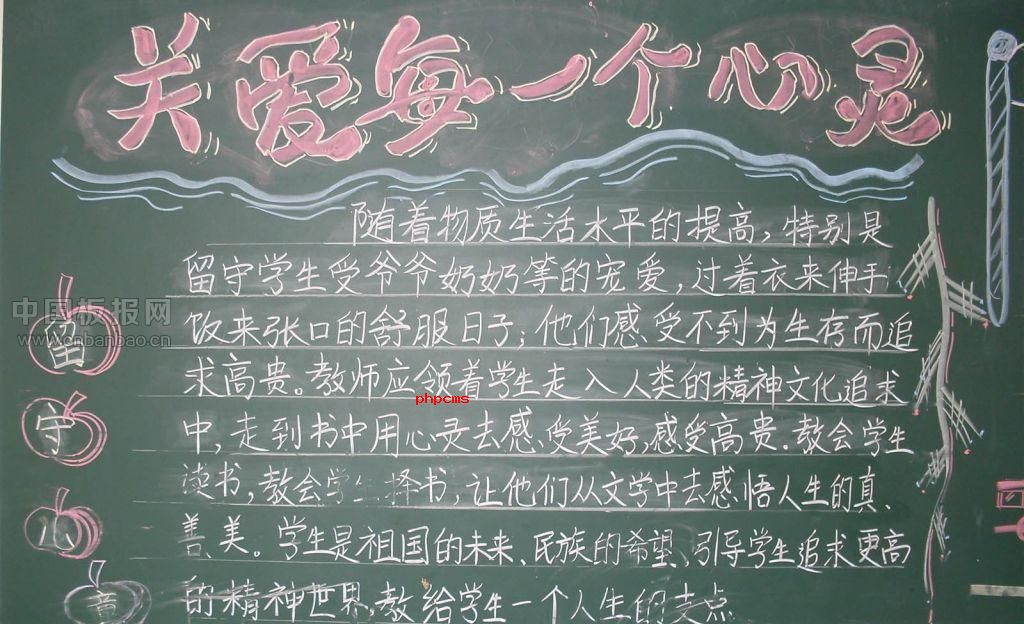 关爱每一个心灵
随着物质生活水平的提高,特别是
留守学生受爷爷奶奶等的宠爱,过着衣来伸手
饭来张口的舒服日子;他们感受不到为生存而追
求高贵。教师应领着学生走入人类的精神文化追求
中,走到书中用心灵去感受美好,感受高贵.教会学生
读书,教会学生择书,让他们从文学中去感悟人生的真、
善、美。学生是祖国的未来、民族的希望、引导学生追求更高
的精神世界,教给学生一个人生的支点
留
守
儿
童
中国板报网
www.cnbanbao.cn
phpcms